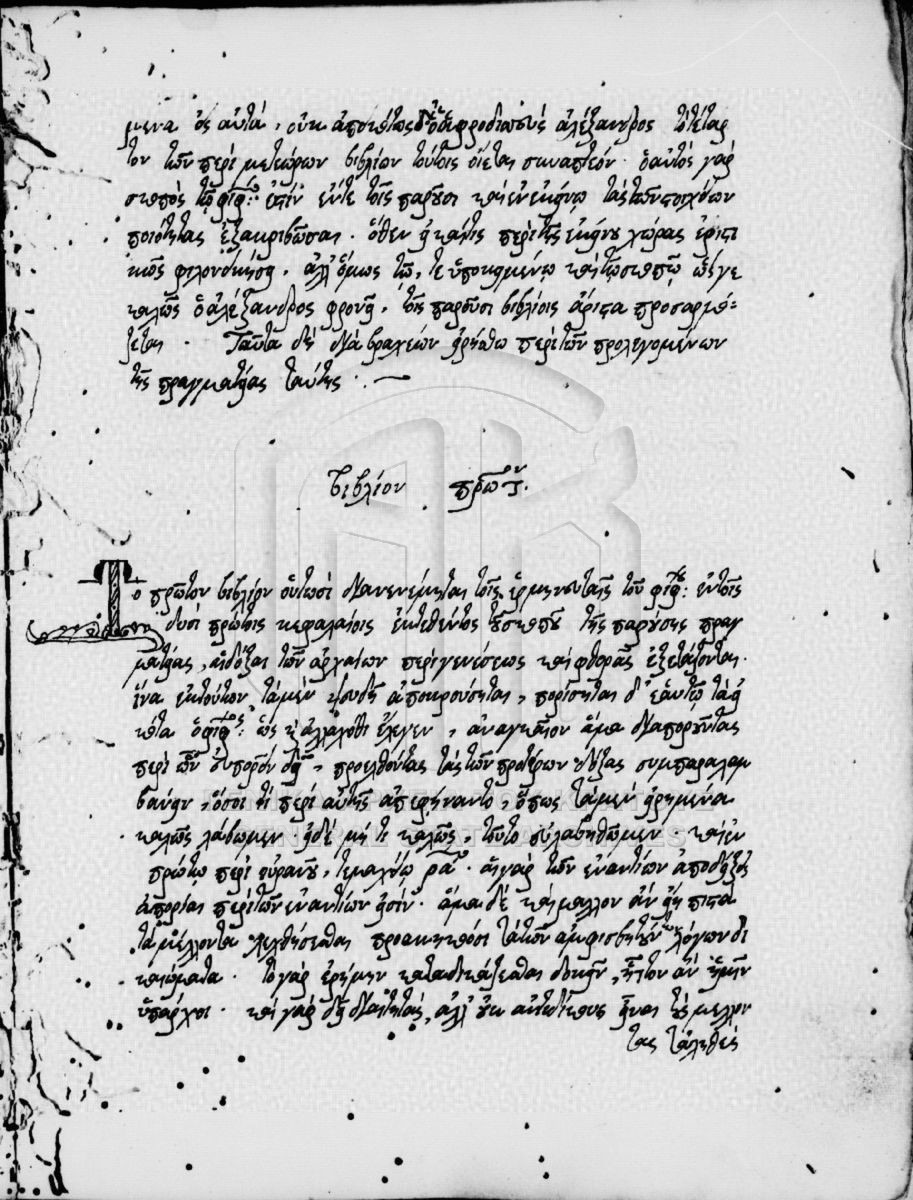 μενα ὡς αὐτὰ, οὐκ ἀπεικότως δὲ ὁ ἀφροδισιεὺς ἀλέξανδρος τὸ τέταρ
τον τῶν περὶ μετεώρων βιβλίον τούτοις οἴεται συναπτέον. ὁ αὐτὸς γὰρ
σκοπὸς τῷ φιφ: ἐστὶν ἔν τε τοῖς παροῦσι καὶ ἐν ἐκείνῳ τὰς τῶν στοιχείων
ποιότητας ἐξακριβῶσαι. ὅθεν εἰ καί τις περὶ τῆς ἐκείνου χώρας ἐριστι
κῶς φιλονεικήσῃ, ἀλλ' ὅμως τῷ, τε ὑποκειμένῳ καὶ τῷ σκοπῷ ὡς γε
καλῶς ὁ ἀλέξανδρος φρονεῖ, τοῖς παροῦσι βιβλίοις ἄριστα προσαρμό-
ζεται. Ταῦτα δὴ διὰ βραχέων εἰρήσθω περὶ τῶν προλεγομένων
τῆς πραγματείας ταύτης.
βιβλίον πρῶτον.
Τὸ πρῶτον βιβλίον οὑτωσὶ διανενέμηται τοῖς ἑρμηνευταῖς τοῦ φιφ: ἐν τοῖς
δυσὶ πρώτοις κεφαλαίοις ἐκτεθέντος τοῦ σκοποῦ τῆς παρούσης πραγ
ματείας, αἱ δόξαι τῶν ἀρχαίων περὶ γενέσεως καὶ φθορᾶς ἐξετάζονται.
ἵνα ἐκ τούτων τὰ μὲν ψευδῆ ἀποκρούσηται, πορίσηται δ' ἑαυτῷ τὰ εἰ
κότα ὁ φιφ: ὡς καὶ ἀλλαχόθι ἔλεγεν, ἀναγκαῖον ἅμα διαποροῦντας
περὶ ὧν εὐπορεῖν δεῖ, προελθόντας τὰς τῶν προτέρων δόξας συμπαραλαμ
βάνειν, ὅσοι τι περὶ αὐτῆς ἀπεφήναντο, ὅπως τὰ μὲν εἰρημένα
καλῶς λάβωμεν. εἰ δέ μή τι καλῶς, τοῦτο εὐλαβηθῶμεν. καὶ ἐν
πρώτῳ περὶ οὐρανοῦ, αἱ γὰρ τῶν ἐναντίων ἀποδείξεις
ἀπορίαι περὶ τῶν ἐναντίων εἰσίν. ἅμα δὲ καὶ μᾶλλον ἂν εἴη πιστὰ
τὰ μέλλοντα λεχθήσεσθαι προακηκοόσι τὰ τῶν ἀμφισβητούντων λόγων δι
καιώματα. τὸ γὰρ ἐρήμην καταδικάζεσθαι δοκεῖν, ἧττον ἂν ἡμῖν
ὑπάρχοι. καὶ γὰρ δεῖ διαιτητὰς, ἀλλ' οὐκ ἀντιδίκους εἶναι τοὺς μέλλον
τας τἀληθὲς